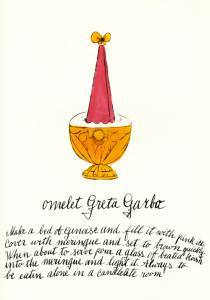 omelet Greta Garbo
Make a bed of Genaise and fill it with pink ice
cover with meringue and set to brown quickly
When about to serve pour a glass of heated
into the meringue and light it. Always to
be eaten alone in a candlelit room